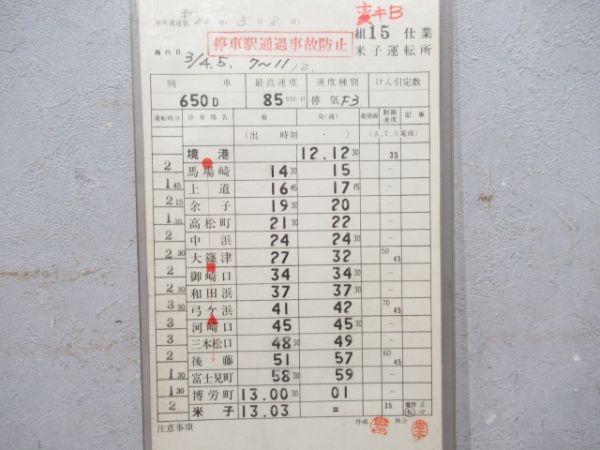 3月8
変キB
停車駅通過事故防止
組15仕業
米子運転所
施行日 3/4.5. 7~11 12.
列車 最高速度 速度種別 けん引定数
650D 85KM/H 停気F3
運転時分 停車場名 着 発(通) 着発線 制限速度 記事
(出 時刻 ・ ) (A.T.S電源)
境港 12.12 30 35
2 馬場崎 14 30 15
1 45 上道 16 45 17 15
2 15 余子 19 30 20
1 30 高松町 21 30 22
2 中浜 24 24 30
2 30 大篠津 27 32 50 45
2 御崎口 34 34 30
2 30 和田浜 37 37 30
3 30 弓ケ浜 41 42 70 45
3 河崎口 45 45 30
3 三本松口 48 30 49
2 後藤 51 57 60 45
1 30 富士見町 58 30 59
1 30 博労町 13.00 30 01
2 米子 13.03 = 35
注意事項 作成 照合